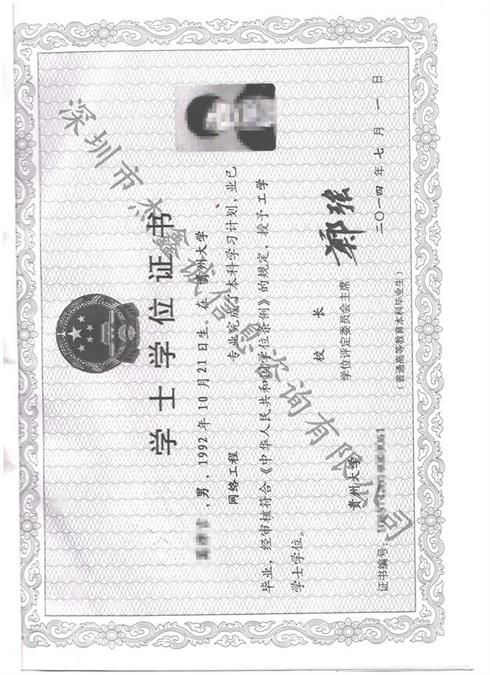 学士学位证书
，男，1992年10月21日生。在 贵州大学
网络工程 专业完成了本科学习计划，业已
毕业，经审核符合《中华人民共和国学位条例》的规定，授予工学
学士学位。
贵州大学
校 长
学位评定委员会主席
郑强
证书编号：
二〇一四年七月一日
（普通高等教育本科毕业生）